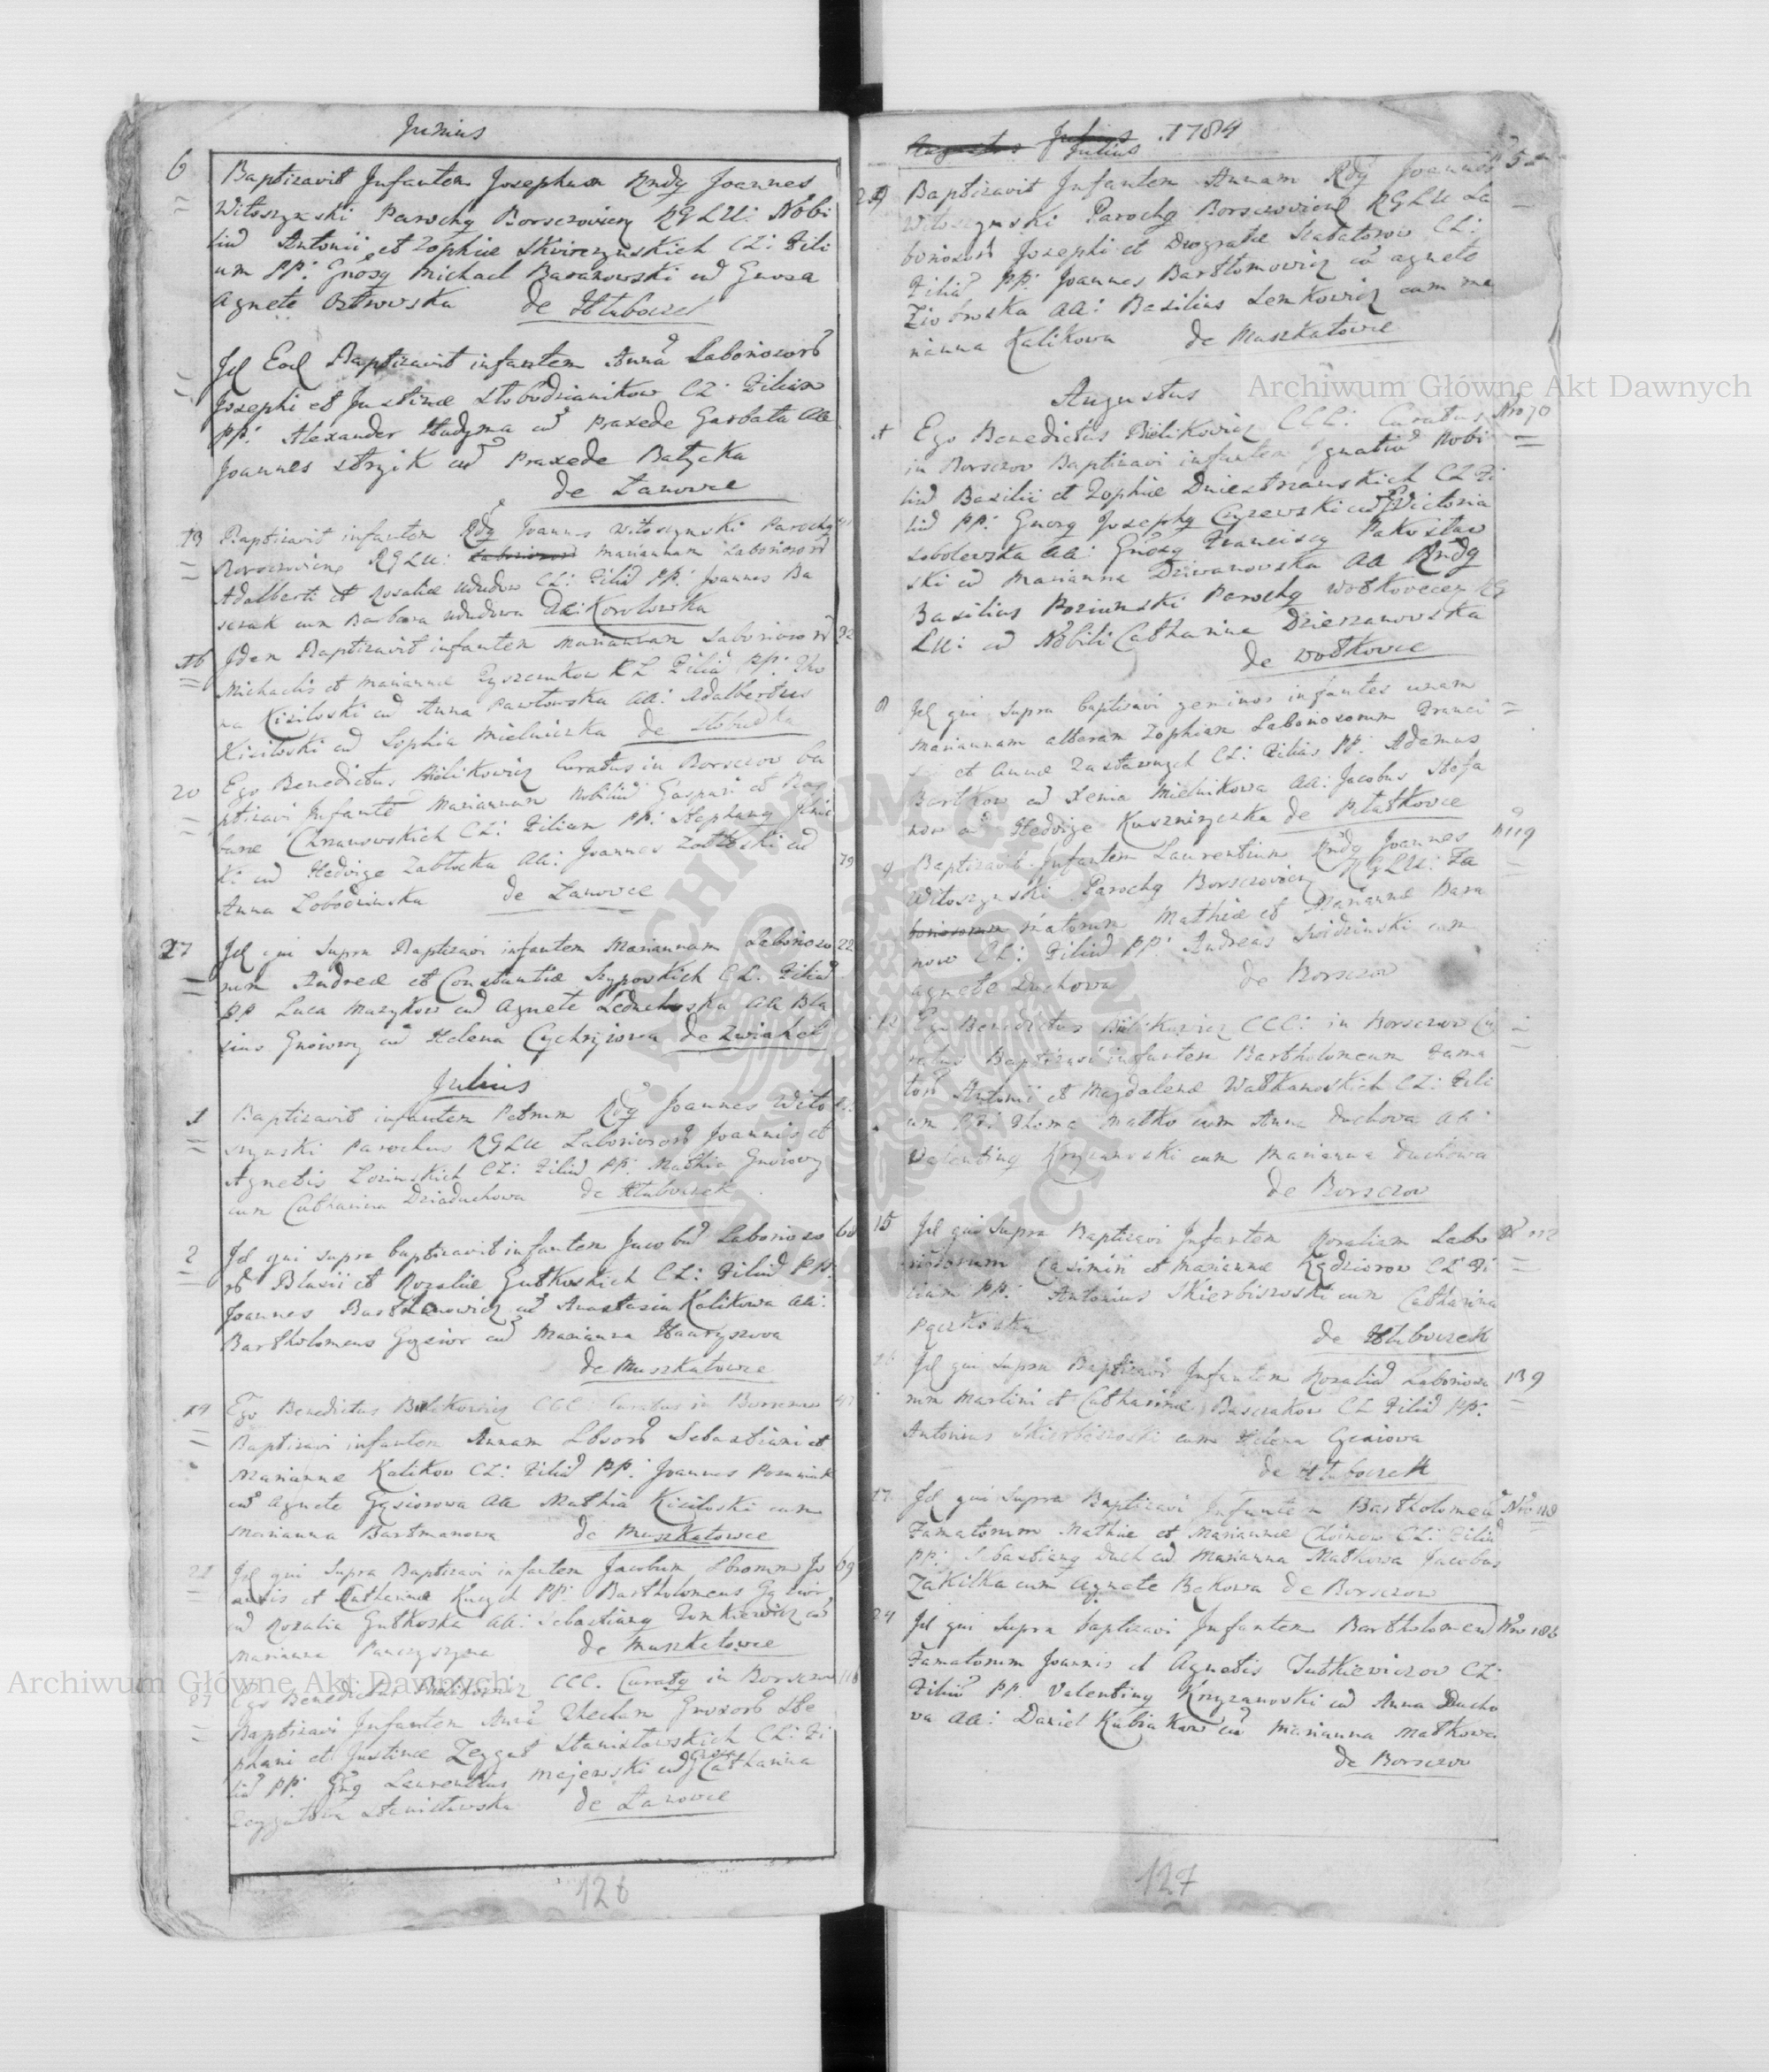 Junius
6 Baptizavit Infantem Josephum Rndg Joannes
Witoszynski Parochg Borsczovieng RGLU: Nobi
liu Antonii et Zophiæ Skwirczynskich CL: Fili
um PP: Gnosg Michael Baranowski cu Gnosa
Agnete Ostrowska de Hluboczek
Id Eod Baptizavit infantem Anna Laboriosor
Josephi et Justinæ Slobodzianikow CL: Filiam
PP: Alexander Hudyma cu Praxede Garbata AA
Joannes Stryik cu Praxede Batycka
de Lanowce
13 Baptizavit infantem Rdg Joannes Witoszynski Parochg
Borsczovieng RGLU: Mariannam Laboriosor
Adalberti et Rosaliæ Ududow CL: Filia PP: Joannes Ba
szczak cum Barbara Ududowa de Korolowka
16 Idem Baptizavit infantem Mariannam Laboriosor 32
Michaelis et Mariannæ CL Filia PP: Tho
ma Kiziloski cu Anna Pawlowska AA: Adalbertus
Kiziloski cu Sophia Mielniczka de Slobudka
20 Ego Benedictus Bielikowicz Curatus in Borsczow ba
ptizavi Infante Mariannam Nobiliu Gaspari et Bar
baræ Chrzanowskich CL: Filiam PP: Stephang
ki cu Hedvige Zablocka AA: Joannes cu 79
Anna Lobodzinska de Lanowce
27 Id qui supra Baptizavi infantem Mariannam Laborioso 22
rum Andreæ et Constantiæ Szypowskich CL. Filia
PP Luca Muzykow cu Agnete Leduchowska AA Bla
sius Gnoiowy cu Helena de Zwiahel
Julius
1 Baptizavit infantem Petrum Rdg Joannes Wito
szynski Parochus RGLU Laboriosor Joannis et
Agnetis Lozinskich CL: Filiu PP: Mathia Gnoiowy
cum Catharina Dziaduchowa de Hluboczek
2 Id qui supra baptizavit infantem Jacobu Laborioso 60
r Blasii et Rozaliæ Gutkoskich CL: Filiu PP:
Joannes Bartlomowicz cu Anastasia Kalikowa AA:
Bartholomeus Gąsior cu Marianna Hawryszowa
de Muszkatowce
14 Ego Benedictus Bielikowicz CCL Curatus in Borsczow 47
Baptizavi infantem Annam Lbsor Sebastiani et
Mariannæ Kalikow CL: Filia PP: Joannes Pozniak
cu Agnete Gąsiorowa AA Mathia Kiziloski cum
Marianna Bartmanowa de Muszkatowce
22 Id qui supra Baptizavi infantem Jacobum Lbrorum Jo 69
annis et Catharinæ PP: Bartholomeus Gąsior
cu Rozalia Gutkoska AA: Sebastiang Zonkiewicz cu
Marianna de Muszkatowce
27 Ego Benedictus Bielikowicz CCL. Curatg in Borsczow 116
Baptizavi Infantem Theclam Gnosor Ste
phani et Justinæ Zeggut Stanislawskich CL: Fi
lia PP: Gng Laurentius Majewski cu Gnosa Catharina
Zeygutowa Stanislawska de Lanowce
126
Augustus Julius Julius 1784
29 Baptizavit Infantem Annam Rdg Joannes 52
Witoszynski Parochg Borsczovieng RGLU La
boriosor Josephi et CL:
Filia PP: Joannes Bartlomowicz cu Agnete
Ziobroska AA: Basilius Senkowicz cum Ma
rianna Kalikowa de Muszkatowce
Augustus
1 Ego Benedictus Bielikowicz CCL: Curatus Nro 70
in Borsczow Baptizavi infantem Ignatiu Nobi
liu Basilii et Zophiæ Dniestrzanskich CL Fi
liu PP: Gnosg Josephg Czyzewski cu Victoria
Sobolewska AA: Gnosg Francisg Pakoslaw
ski cu Marianna Dziwanowska AA Rndg
Basilius Parochg Wolkoveceg RG
LU: cu Nobili Catharina Dzierzanowska
de Wolkowce
8 Id qui supra baptizavi geminos infantes unam
Mariannam alteram Zophiam Laboriosorum Franci
sci et Annæ Zastawnych CL: Filias PP: Adamus
Bartkow cu Xenia Mielnikowa AA: Jacobus Stefa
now cu Hedvige Kuszniryczka de Pilatkowce
9 Baptizavit Infantem Laurentium Rndg Joannes N119
Witoszynski Parochg Borsczovieng RGLU: Fa
boriosorum matorum Mathiæ et Mariannæ Bara
now CL: Filiu PP: Andreas cum
Agnete Duchowa de Borsczow
12 Ego Benedictus Bielikowicz CCL: in Borsczow Cu
ratus Baptizavi infantem Bartholomeum Fama
tor Antonii et Magdalenæ Walkanoskich CL: Fili
um PP: Thoma Matko cum Anna Duchowa AA:
Valenting Kryzanoski cum Marianna Duchowa
de Borsczow
15 Id qui supra Baptizavi Infantem Rozaliam Labo N 112
riosorum Casimiri et Mariannæ Kędziorow CL Fi
liam PP: Antonius Skierbiszoski cum Catharina
Pączkoska de Hluboczek
Id qui supra Baptizavi Infantem Rozalia Laborioso 139
rum Martini et Catharinæ Baszczakow CL Filia PP:
Antonius Skierbiszoski cum Helena
de Hluboczek
17 Id qui supra Baptizavi Infantem Bartholomeu Nro 118
Famatorum Mathiæ et Mariannæ CL: Filiu
PP: Sebastiang Duch cu Marianna Matkowa Jacobus
Zakilka cum Agnete Bękowa de Borsczow
24 Id qui supra Baptizavi Infantem Bartholomeu Nro 186
Famatorum Joannis et Agnetis Jutkiewiczow CL:
Filiu PP. Valenting Kryzanoski cu Anna Ducho
va AA: Daniel Kubiakow cu Marianna Matkowa
de Borsczow
127
Archiwum Główne Akt Dawnych
Archiwum Główne Akt Dawnych